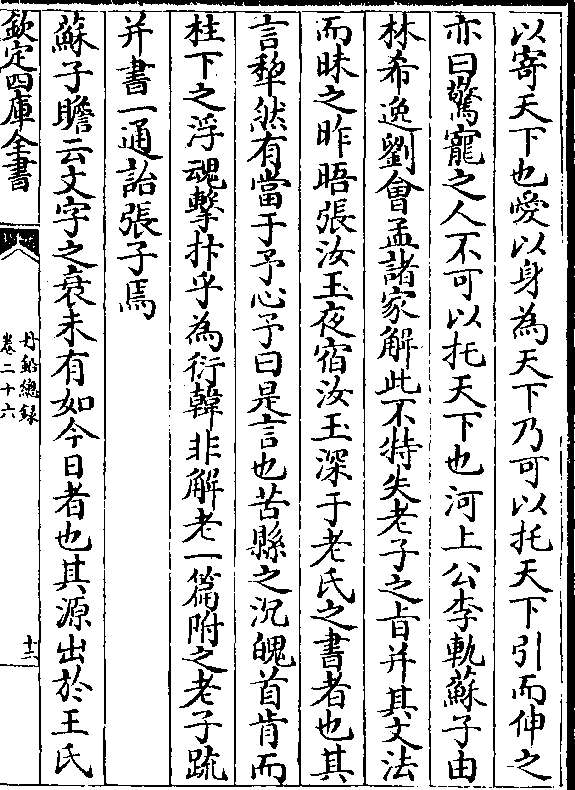 以寄天下也愛以身為天下乃可以托天下引而伸之
亦曰驚寵之人不可以托天下也河上公李軌蘇子由
林希逸劉會孟諸家解此不特失老子之旨并其文法
而昧之昨晤張汝玉夜宿汝玉深于老氏之書者也其
言犂然有當于予心予曰是言也苦縣之沉魄首肯而
柱下之浮魂擊抃乎為衍韓非解老一篇附之老子疏
并書一通詒張子焉
蘇子瞻云文字之衰未有如今日者也其源出於王氏
欽定四庫全書
丹鉛總録
卷二十六
十三